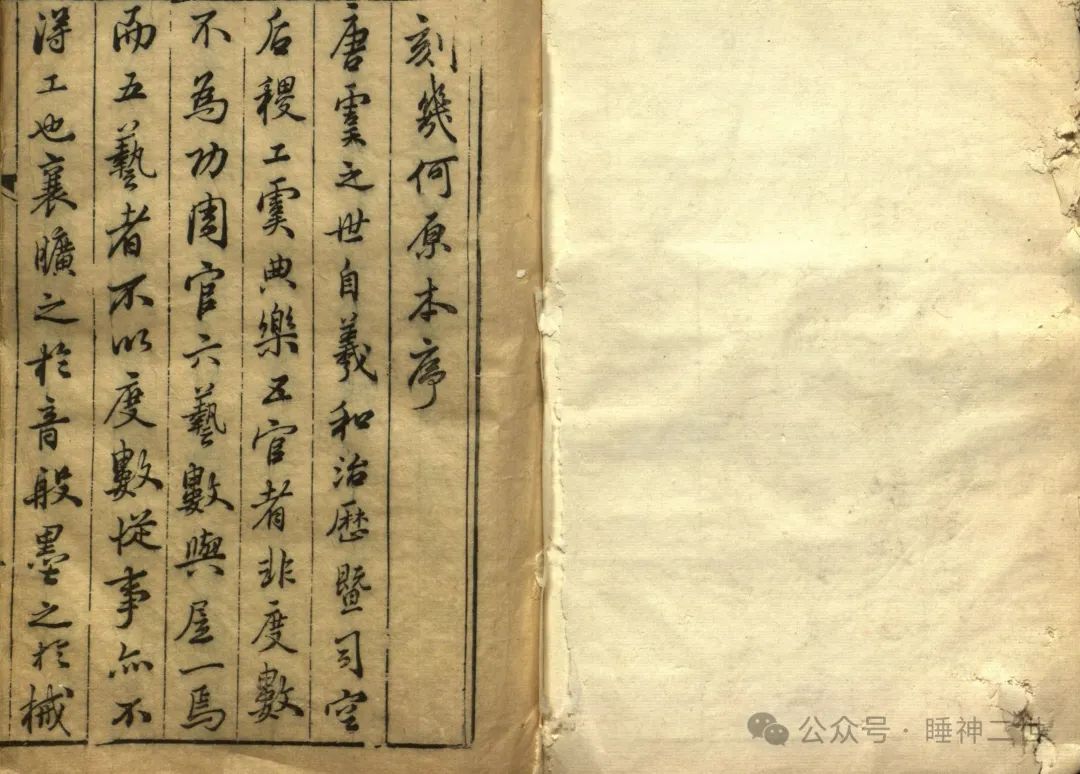 刻幾何原本序
唐虞之世自羲和治歷暨司空
后稷工虞典樂五官者非度數
不為功周官六藝數與居一焉
而五藝者不以度數從事亦不
得工也襄曠之於音般墨之於械
公众号·睡神二